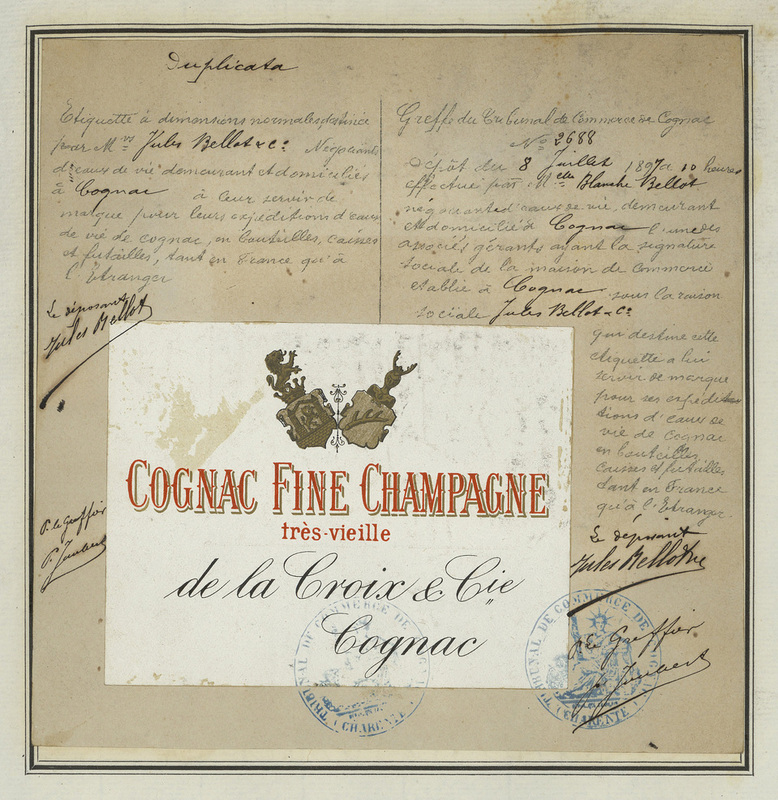 Duplicata
Etiquette à dimensions normales, destinée
pour Mrs Jules Bellot & Co Négociants
d'eaux de vie demeurant et domiciliés
à Cognac à leur servir de
marque pour leurs expéditions d'eaux
de vie de cognac, en bouteilles, caisses
et futailles, tant en France qu'à
l'Etranger
Le déposant
Jules Bellot
P. le Greffier
P. Jaubert
Greffe du Tribunal de Commerce de Cognac
No 2688
Dépôt du 8 Juillet 1897 à 10 heures
effectué par Melle Blanche Bellot
négociante d'eaux de vie, demeurant
et domiciliée à Cognac l'une des
associés gérants ayant la signature
sociale de la maison de Commerce
établie à Cognac sous la raison
sociale Jules Bellot & Co
qui destine cette
étiquette à lui
servir de marque
pour ses expédi
tions d'eaux de
vie de Cognac
en bouteilles,
caisses et futailles
tant en France
qu'à l'Etranger.
Le déposant
Jules Bellot
P. le Greffier
P. Jaubert
COGNAC FINE CHAMPAGNE
très-vieille
de la Croix & Cie
Cognac
TRIBUNAL DE COMMERCE DE COGNAC
(CHARENTE)
TRIBUNAL DE COMMERCE DE COGNAC
(CHARENTE)